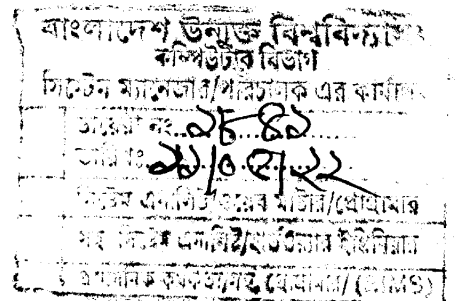 বাংলাদেশ উন্মুক্ত বিশ্ববিদ্যালয়
কম্পিউটার বিভাগ
সিস্টেম ম্যানেজার/পরিচালক এর কার্যালয়
ডায়েরী নং..২৮৪৯......
তারিখঃ
সিস্টেম এনালিস্ট/ওয়েব মাস্টার/প্রোগ্রামার
সহঃ সিস্টেম এনালিস্ট/হার্ডওয়্যার ইঞ্জিনিয়ার
প্রশাসনিক কর্মকর্তা/সহঃ প্রোগ্রামার/